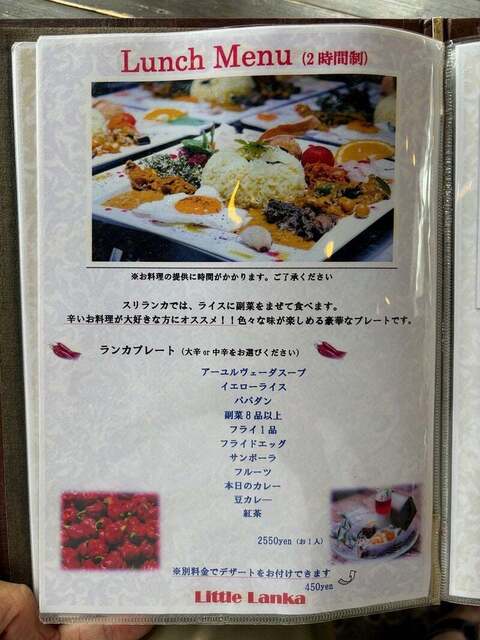 Lunch Menu (2時間制)
※お料理の提供に時間がかかります。ご了承ください
スリランカでは、ライスに副菜をまぜて食べます。
辛いお料理が大好きな方にオススメ!!色々な味が楽しめる豪華なプレートです。
ランカプレート（大辛 or 中辛をお選びください）
アーユルヴェーダスープ
イエローライス
パパダン
副菜8品以上
フライ1品
フライドエッグ
サンボーラ
フルーツ
本日のカレー
豆カレー
紅茶
2550yen（お1人）
※別料金でデザートをお付けできます
450yen
Little Lanka